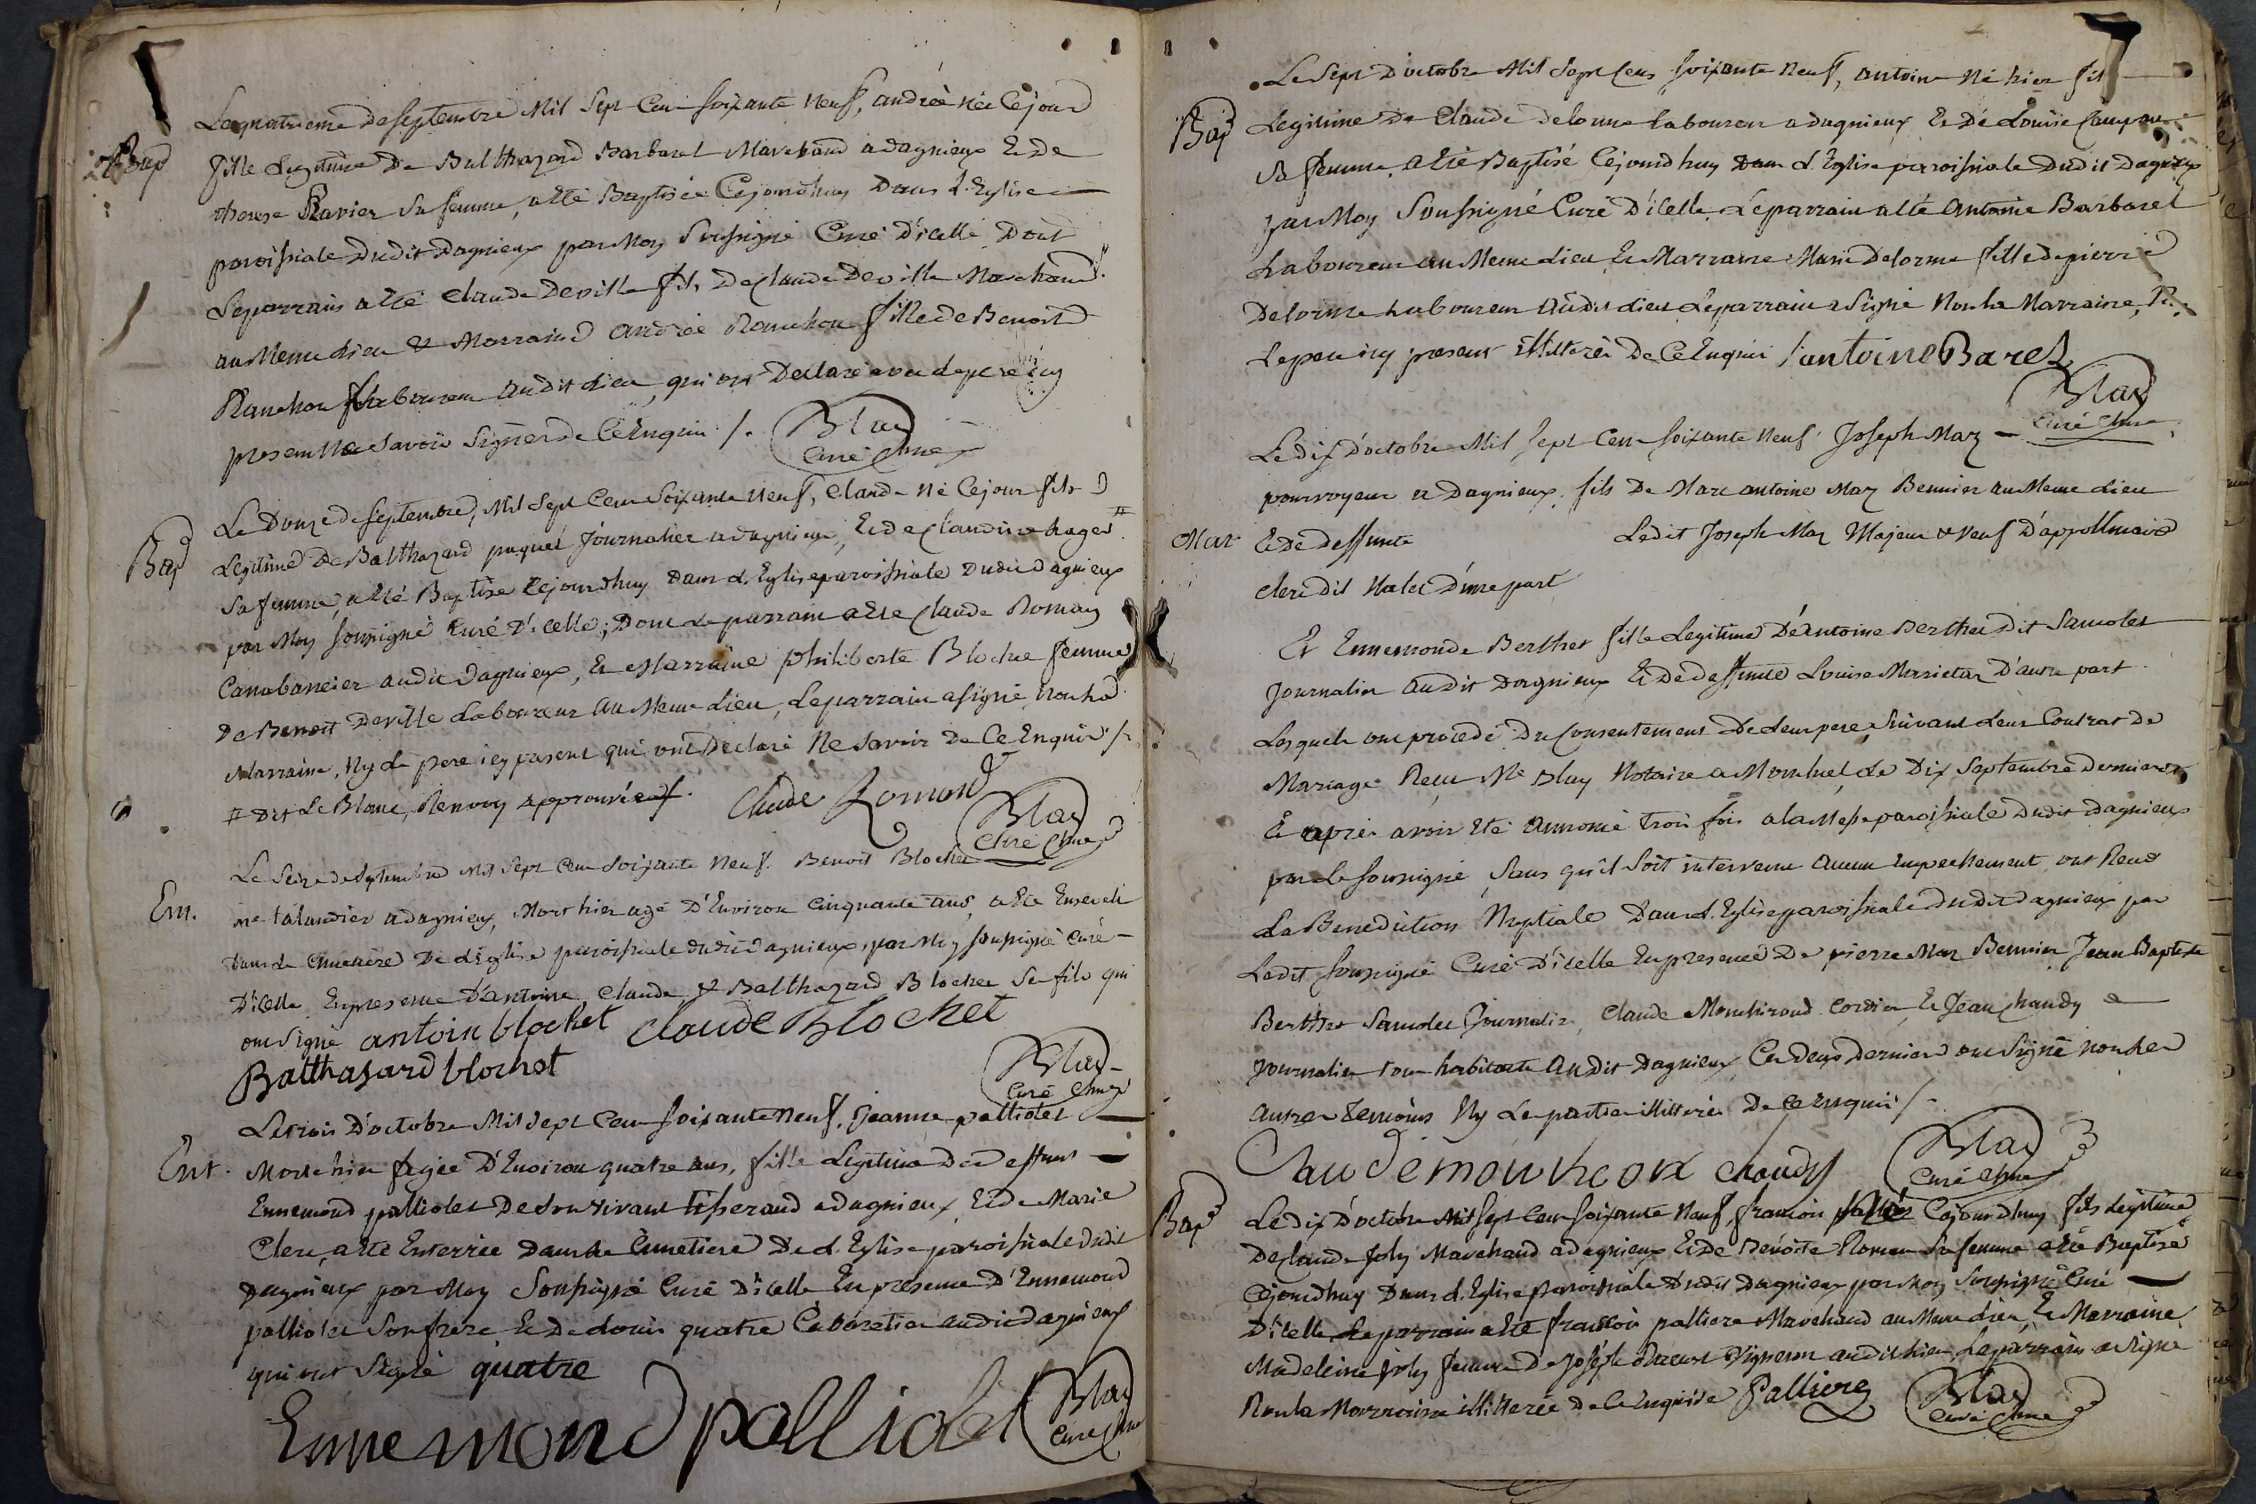 Bap
Le quatrieme de septembre Mil Sept Cent soixante neuf, andrée née Ce jour
fille Legitime De Balthazard Barbaret Marchand a dagnieux Et De
therese Ravier Sa femme, a Eté Baptisée Cejourdhuy Dans L'Eglise
paroissiale Dudit Dagnieux par Moy Soussigné Curé D'icelle Dont
Le parrain a Eté Claude Deville fils De Claude Deville Marchand
au Meme Lieu & Marraine andrée Ranchon fille de Benoit
Ranchon Laboureur audit Lieu, qui ont Declaré avec Le pere icy
present Ne Savoir Signer de Ce Enquis /. Blay
Curé
Bap
Le Douze de Septembre, Mil Sept Cent Soixante Neuf, Claude Né Cejour fils
Legitime De Balthazard paquet Journalier a dagnieux, Et de Claudine hager #
Sa femme, a Eté Baptisé Cejourdhuy dans L'Eglise paroissiale Dudit Dagnieux
par Moy soussigné Curé D'icelle; Dont Le parrain a Eté Claude Roman
Canabassier audit Dagnieux, Et Marraine philiberte Blochet femme
De Benoit Deville Laboureur Au Meme Lieu, Le parrain a signé Non La
Marraine, Ny Le pere icy present qui ont Declaré Ne Savoir De Ce Enquis /.
# Dit Le Blanc, Renvoy approuvé /. Claude Romand
Blay
Curé
Em.
Le Seize de Septembre Mil Sept Cent Soixante Neuf. Benoit Blochet
me talandier a dagnieux, Mort hier agé D'Environ Cinquante ans, a Eté Enseveli
Dans Le Cimetiere De L'Eglise paroissiale dudit Dagnieux, par Moy soussigné Curé
D'icelle En presence D'antoine, Claude & Balthazard Blochet Ses fils qui
ont Signé antoin blochet Claude Blochet
Balthasard blochet
Blay
Curé
Ent.
Le trois D'octobre Mil Sept Cent Soixante Neuf, Jeanne palliolet
Morte hier agée D'Environ quatre ans, fille Legitime De deffunt
Ennemond palliolet De Son vivant tisserand a dagnieux, Et De Marie
Clerc, a Eté Enterrée Dans Le Cimetiere De L'Eglise paroissiale Dudit
Dagnieux par Moy Soussigné Curé D'icelle En presence D'Ennemond
palliolet Son frere Et De Louis quatre Cabaretier audit Dagnieux
qui ont Signé quatre
Ennemond palliolet
Blay
Curé
Bap
Le Sept D'octobre Mil Sept Cent Soixante Neuf, antoine Né hier fils
Legitime De Claude Delorme Laboureur a dagnieux Et De Louise
Sa femme, a Eté Baptisé Cejourdhuy Dans L'Eglise paroissiale Dudit Dagnieux
par Moy Soussigné Curé D'icelle Le parrain a Eté Antoine Barbaret
Laboureur au Meme Lieu Et Marraine Marie Delorme fille de pierre
Delorme Laboureur Audit Lieu Le parrain a Signé Non La Marraine, Ni
Le pere icy present illiterés De Ce Enquis antoine Baret
Blay
Curé
Mar
Le dix D'octobre Mil Sept Cent soixante Neuf Joseph Maz
pourvoyeur a Dagnieux, fils De Marc antoine Maz Bennier au Meme Lieu
Et De Deffunte Ledit Joseph Maz Majeur & Veuf D'appollinaire
Clerc dit Valet D'une part
Et Ennemonde Berthet fille Legitime D'Antoine Berthet Dit Samolet
Journalier Audit Dagnieux Et De deffunte Louise Marietan D'autre part
Lesquels ont procedé Du Consentement De Leur pere, Suivant Leur Contrat De
Mariage Reçu Me Notaire a Montluel, Le Dix Septembre Dernier
Et apres avoir Eté annoncé trois fois a La Messe paroissiale Dudit Dagnieux
par Le soussigné, Sans qu'il Soit intervenu Aucun Empechement, ont Recu
La Benediction Nuptiale Dans L'Eglise paroissiale Dudit Dagnieux par
Ledit soussigné Curé D'icelle En presence De pierre Maz Bennier, Jean Baptiste
Berthet Samolet Journalier, Claude Monchiroud Cordier, Et Jean Chaudy
Journalier tous habitants Audit Dagnieux Ces deux Derniers ont Signé non Les
Autres temoins Ny Les parties illiterés De Ce Enquis /.
chaudy
Blay
Curé
Bap
Le dix D'octobre Mil Sept Cent soixante Neuf, francois Cejourdhuy fils Legitime
De Claude Joly Marchand a dagnieux Et De Benoite Roman Sa femme a Eté Baptisé
Cejourdhuy Dans L'Eglise paroissiale Dudit Dagnieux par Moy Soussigné Curé
D'icelle Le parrain a Eté francois palliere Marchand au Meme Lieu, Et Marraine
Madeleine Joly femme De Joseph Vigneron audit Lieu, Le parrain a Signé
Non La Marraine illiterée De Ce Enquise Palliere
Blay
Curé